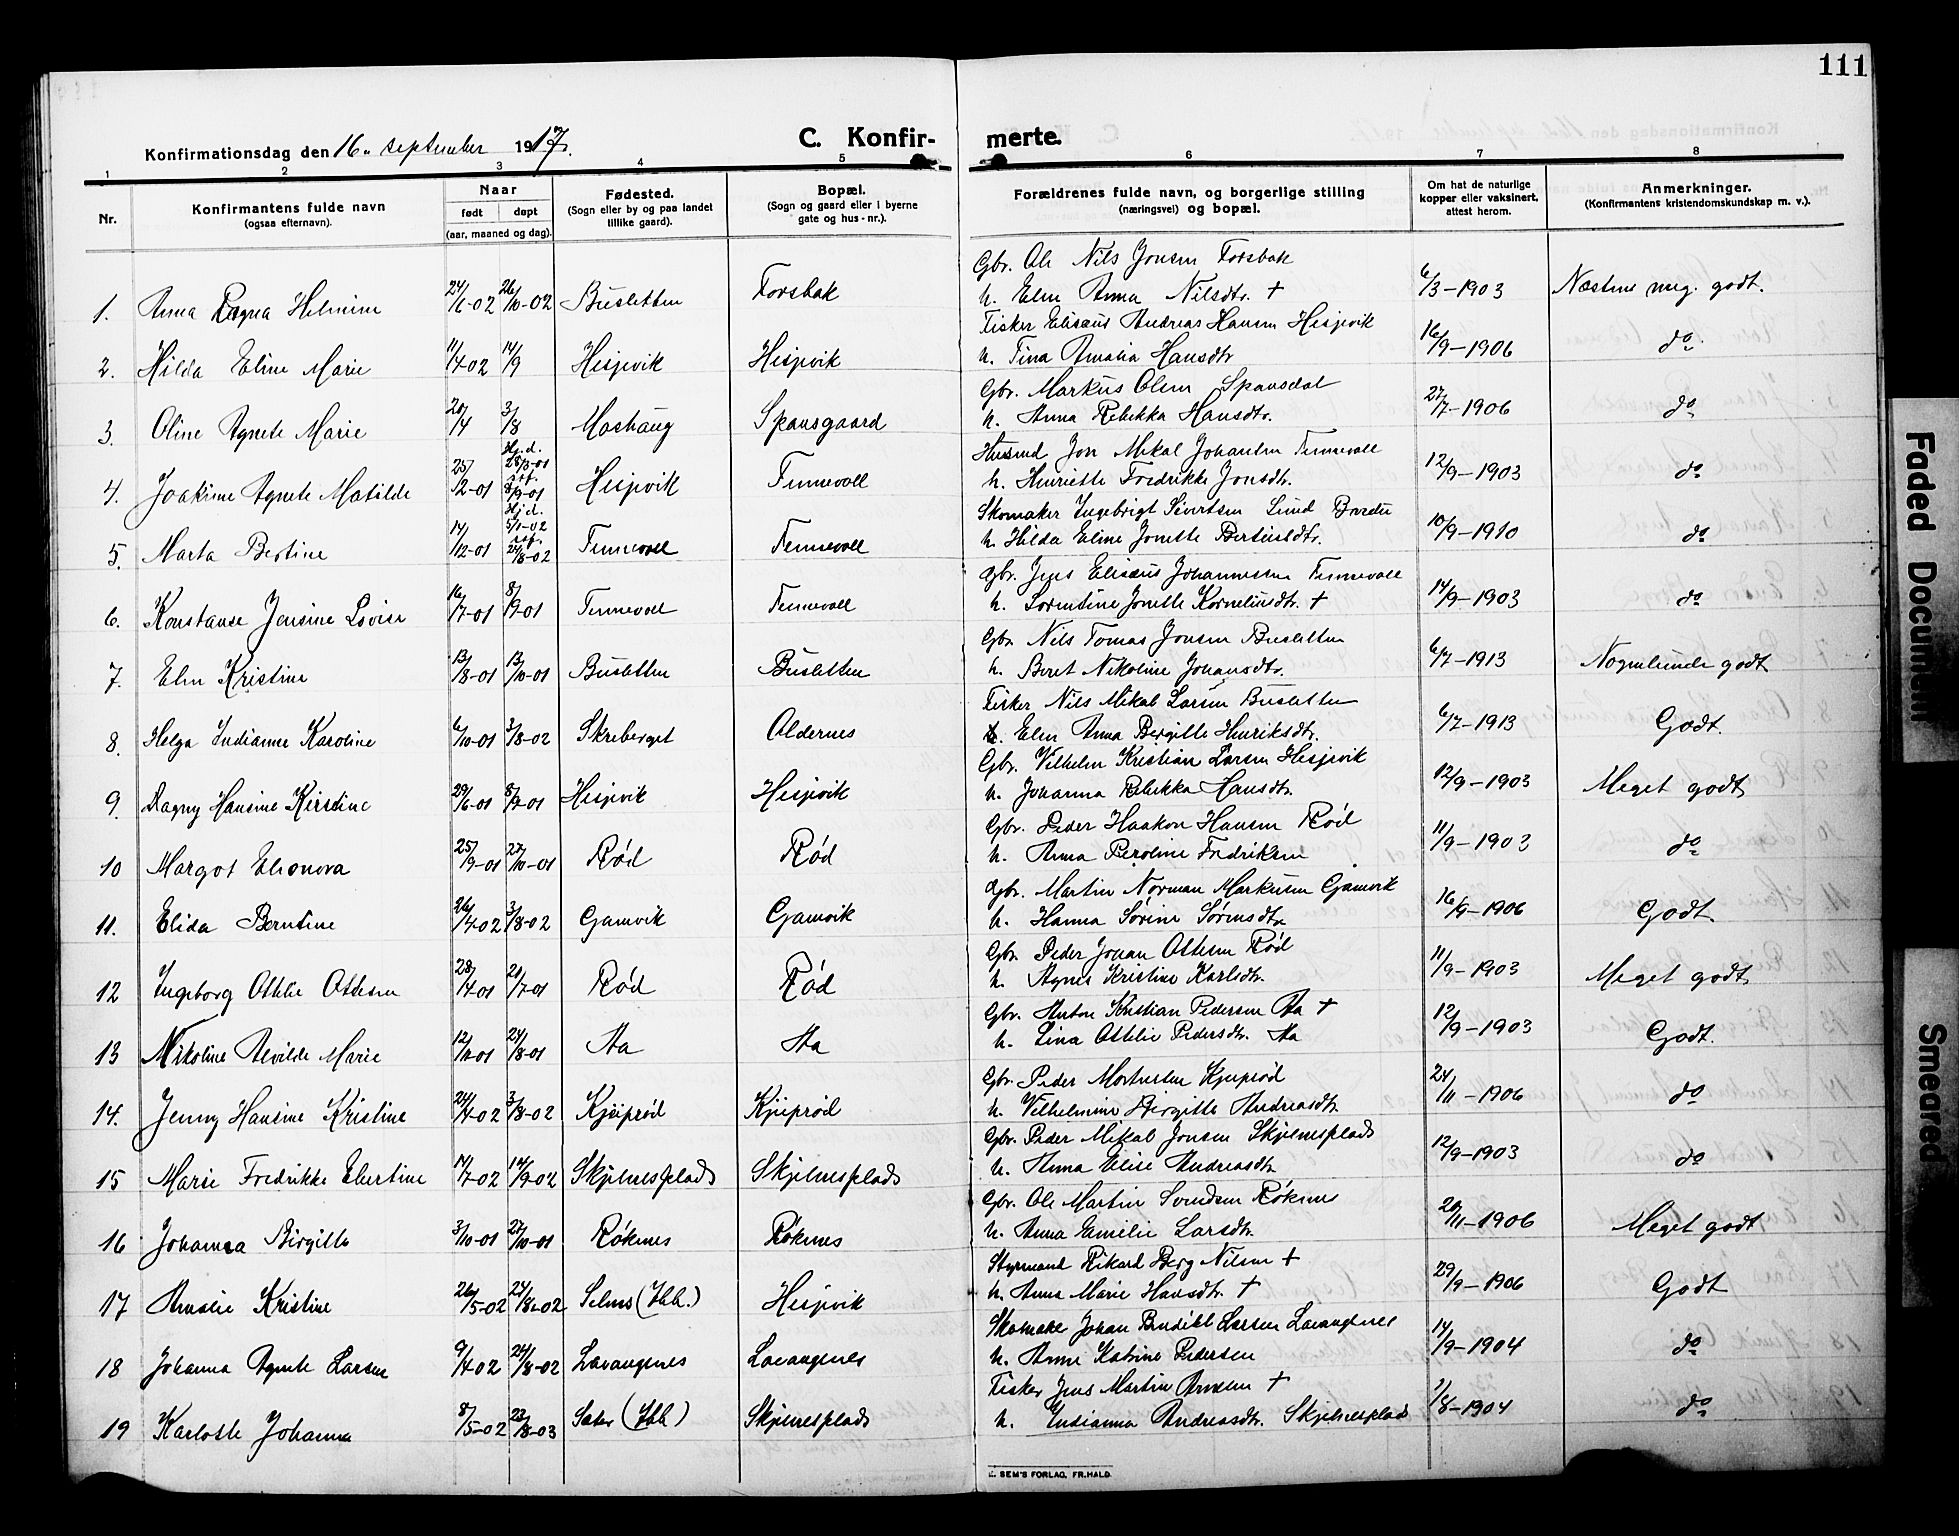 111
Konfirmationsdag den 16. september 1917.
C. Konfir- merte.
1 2 3 4 5 6 7 8
Nr.
Konfirmantens fulde navn
(ogsaa efternavn).
Naar
født døpt
(aar, maaned og dag).
Fødested.
(Sogn eller by og paa landet
tillike gaard).
Bopæl.
(Sogn og gaard eller i byerne
gate og hus-nr.).
Forældrenes fulde navn, og borgerlige stilling
(næringsvei) og bopæl.
Om hat de naturlige
kopper eller vaksinert,
attest herom.
Anmerkninger.
(Konfirmantens kristendomskundskap m. v.).
Gbr. Ole Nils Jonsen Forsbak
1. Anna Ragna Helmine 24/6-02 26/10-02 Busletten Forsbak h. Elen Anna Nilsdtr. † 6/3-1903 Næsten meg. godt.
Fisker Elisæus Andreas Hansen Hesjevik
2. Hilda Eline Marie 11/4-02 14/9 Hesjevik Hesjevik h. Tina Amalia Hansdtr 16/9-1906 do
Gbr. Markus Olsen Spansdal
3. Oline Agnete Marie 20/4 3/8 Moshaug Spansgaard h. Anna Rebekka Hansdtr. 27/7-1906 do
Husmd Jon Mikal Johansen Tennevoll
4. Joakime Agnete Matilde 25/2-01 Hj.d. 28/3-01 stf. 8/9-01 Hesjevik Tennevoll h. Henriette Fredrikke Jonsdtr. 12/9-1903 do
Skomaker Ingebrigt Sivertsen Lund
5. Marta Bertine 14/12-01 Hj.d. 5/1-02 stf. 24/8-02 Tennevoll Tennevoll h. Hilda Eline Jonette Bertinsdtr. 10/9-1910 do
Gbr. Jens Elisæus Johannessen Tennevoll
6. Konstanse Jensine Lovise 16/7-01 8/9-01 Tennevoll Tennevoll h. Sorentine Jonette Korneliusdtr. † 14/9-1903 do
Gbr. Nils Tomas Jonsen Busletten
7. Elen Kristine 13/8-01 13/10-01 Busletten Busletten h. Beret Nikoline Johansdtr. 6/7-1913 Nogenlunde godt
Fisker Nils Mikal Larsen Busletten
8. Helga Indianne Karoline 6/10-01 3/8-02 Skreberget Oldernes h. Elen Anna Bergitte Henriksdtr. 6/7-1913 Godt.
Gbr. Vilhelm Kristian Larsen Hesjevik
9. Ragny Hansine Kirstine 29/6-01 8/9-01 Hesjevik Hesjevik h. Johanna Rebekka Hansdtr. 12/9-1903 Meget godt
Gbr. Peder Haakon Hansen Rød
10 Margot Elionora 25/9-01 27/10-01 Rød Rød h. Anna Peroline Fredriksen 11/9-1903 do
Gbr. Martin Norman Markusen Gamvik
11. Elida Berntine 26/4-02 3/8-02 Gamvik Gamvik h. Hanna Sørine Sørensdtr 16/9-1906 Godt
Gbr. Peder Johan Ottesen Rød
12 Ingeborg Ottilie Ottesen 28/4-01 21/7-01 Rød Rød h. Agnes Kristine Karlsdtr. 11/9-1903 Meget godt
Gbr. Anton Kristian Pedersen Aa †
13 Nikoline Alvilde Marie 24/8-01 Aa Aa h. Lina Ottilie Pedersdtr. Aa 12/9-1903 Godt.
Gbr. Peder Mortensen Kjeiprød
14. Jenny Hansine Kristine 24/4-02 3/8-02 Kjeiprød Kjeiprød h. Vilhelmine Birgitte Andreasdtr. 24/11-1906 do
Gbr. Peder Mikal Jonsen Skjelnesplads
15 Marie Fredrikke Ebertine 17/7-02 14/9-02 Skjelnesplads Skjelnesplads h. Anna Elise Andreasdtr 12/9-1903 do
Gbr. Ole Martin Svendsen Røknes
16 Johanna Birgitte 3/10-01 27/10-01 Røknes Røknes h. Anna Emilie Larsdtr. 20/11-1906 Meget godt
Styrmand Rikard Berg Nilsen †
17 Amalie Kristine 26/5-02 24/8-02 Selnes (Ibb.) Hesjevik h. Anna Marie Hansdtr. † 29/9-1906 Godt
Skomaker Johan Bendikt Larsen Lavangsnes
18 Johanna Agnete Larsen 9/4-02 24/8-02 Lavangsnes Lavangsnes h. Anne Katrine Pedersen 14/9-1904 do
Fisker Jens Martin Arntsen †
19 Karlotte Johanna 8/5-02 23/8-03 Sæter (Ibb.) Skjelnesplads h. Indianna Andreasdtr. Skjelnesplads 1/8-1904 do
E. SEM'S FORLAG, FR.HALD.
Faded Document
Smeared